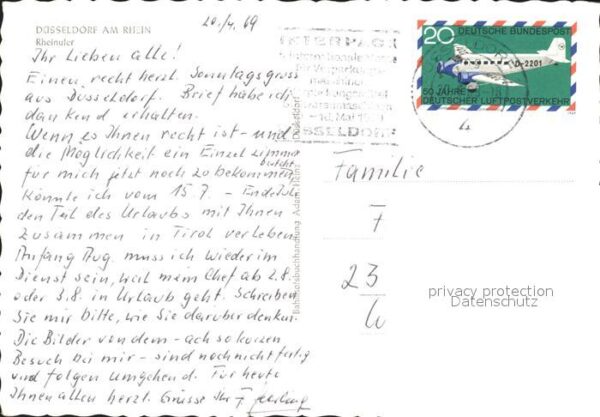 DÜSSELDORF AM RHEIN
Rheinufer
20./4. 69
Ihr Lieben alle!
Einen recht herzl. Sonntagsgruss
aus Düsseldorf. Brief habe ich
dankend erhalten.
Wenn es Ihnen recht ist - und
die Möglichkeit ein Einzelzimmer
für mich jetzt noch zu bekommen besteht
könnte ich vom 15.7. - Ende Juli
den Teil des Urlaubs mit Ihnen
zusammen in Tirol verleben.
Anfang Aug. muss ich wieder im
Dienst sein, weil mein Chef ab 2.8.
oder 3.8. in Urlaub geht. Schreiben
Sie mir bitte, wie Sie darüber denken.
Die Bilder von dem - ach so kurzen
Besuch bei mir - sind noch nicht fertig
und folgen umgehend. Für heute
Ihnen allen herzl. Grüsse Ihr F
Bahnhofsbuchhandlung Adam Heinz Düsseldorf
INTERPACK
SSELDORF
20 DEUTSCHE BUNDESPOST
D-2201
50 JAHRE
DEUTSCHER LUFTPOSTVERKEHR
Familie
F
23
privacy protection
Datenschutz